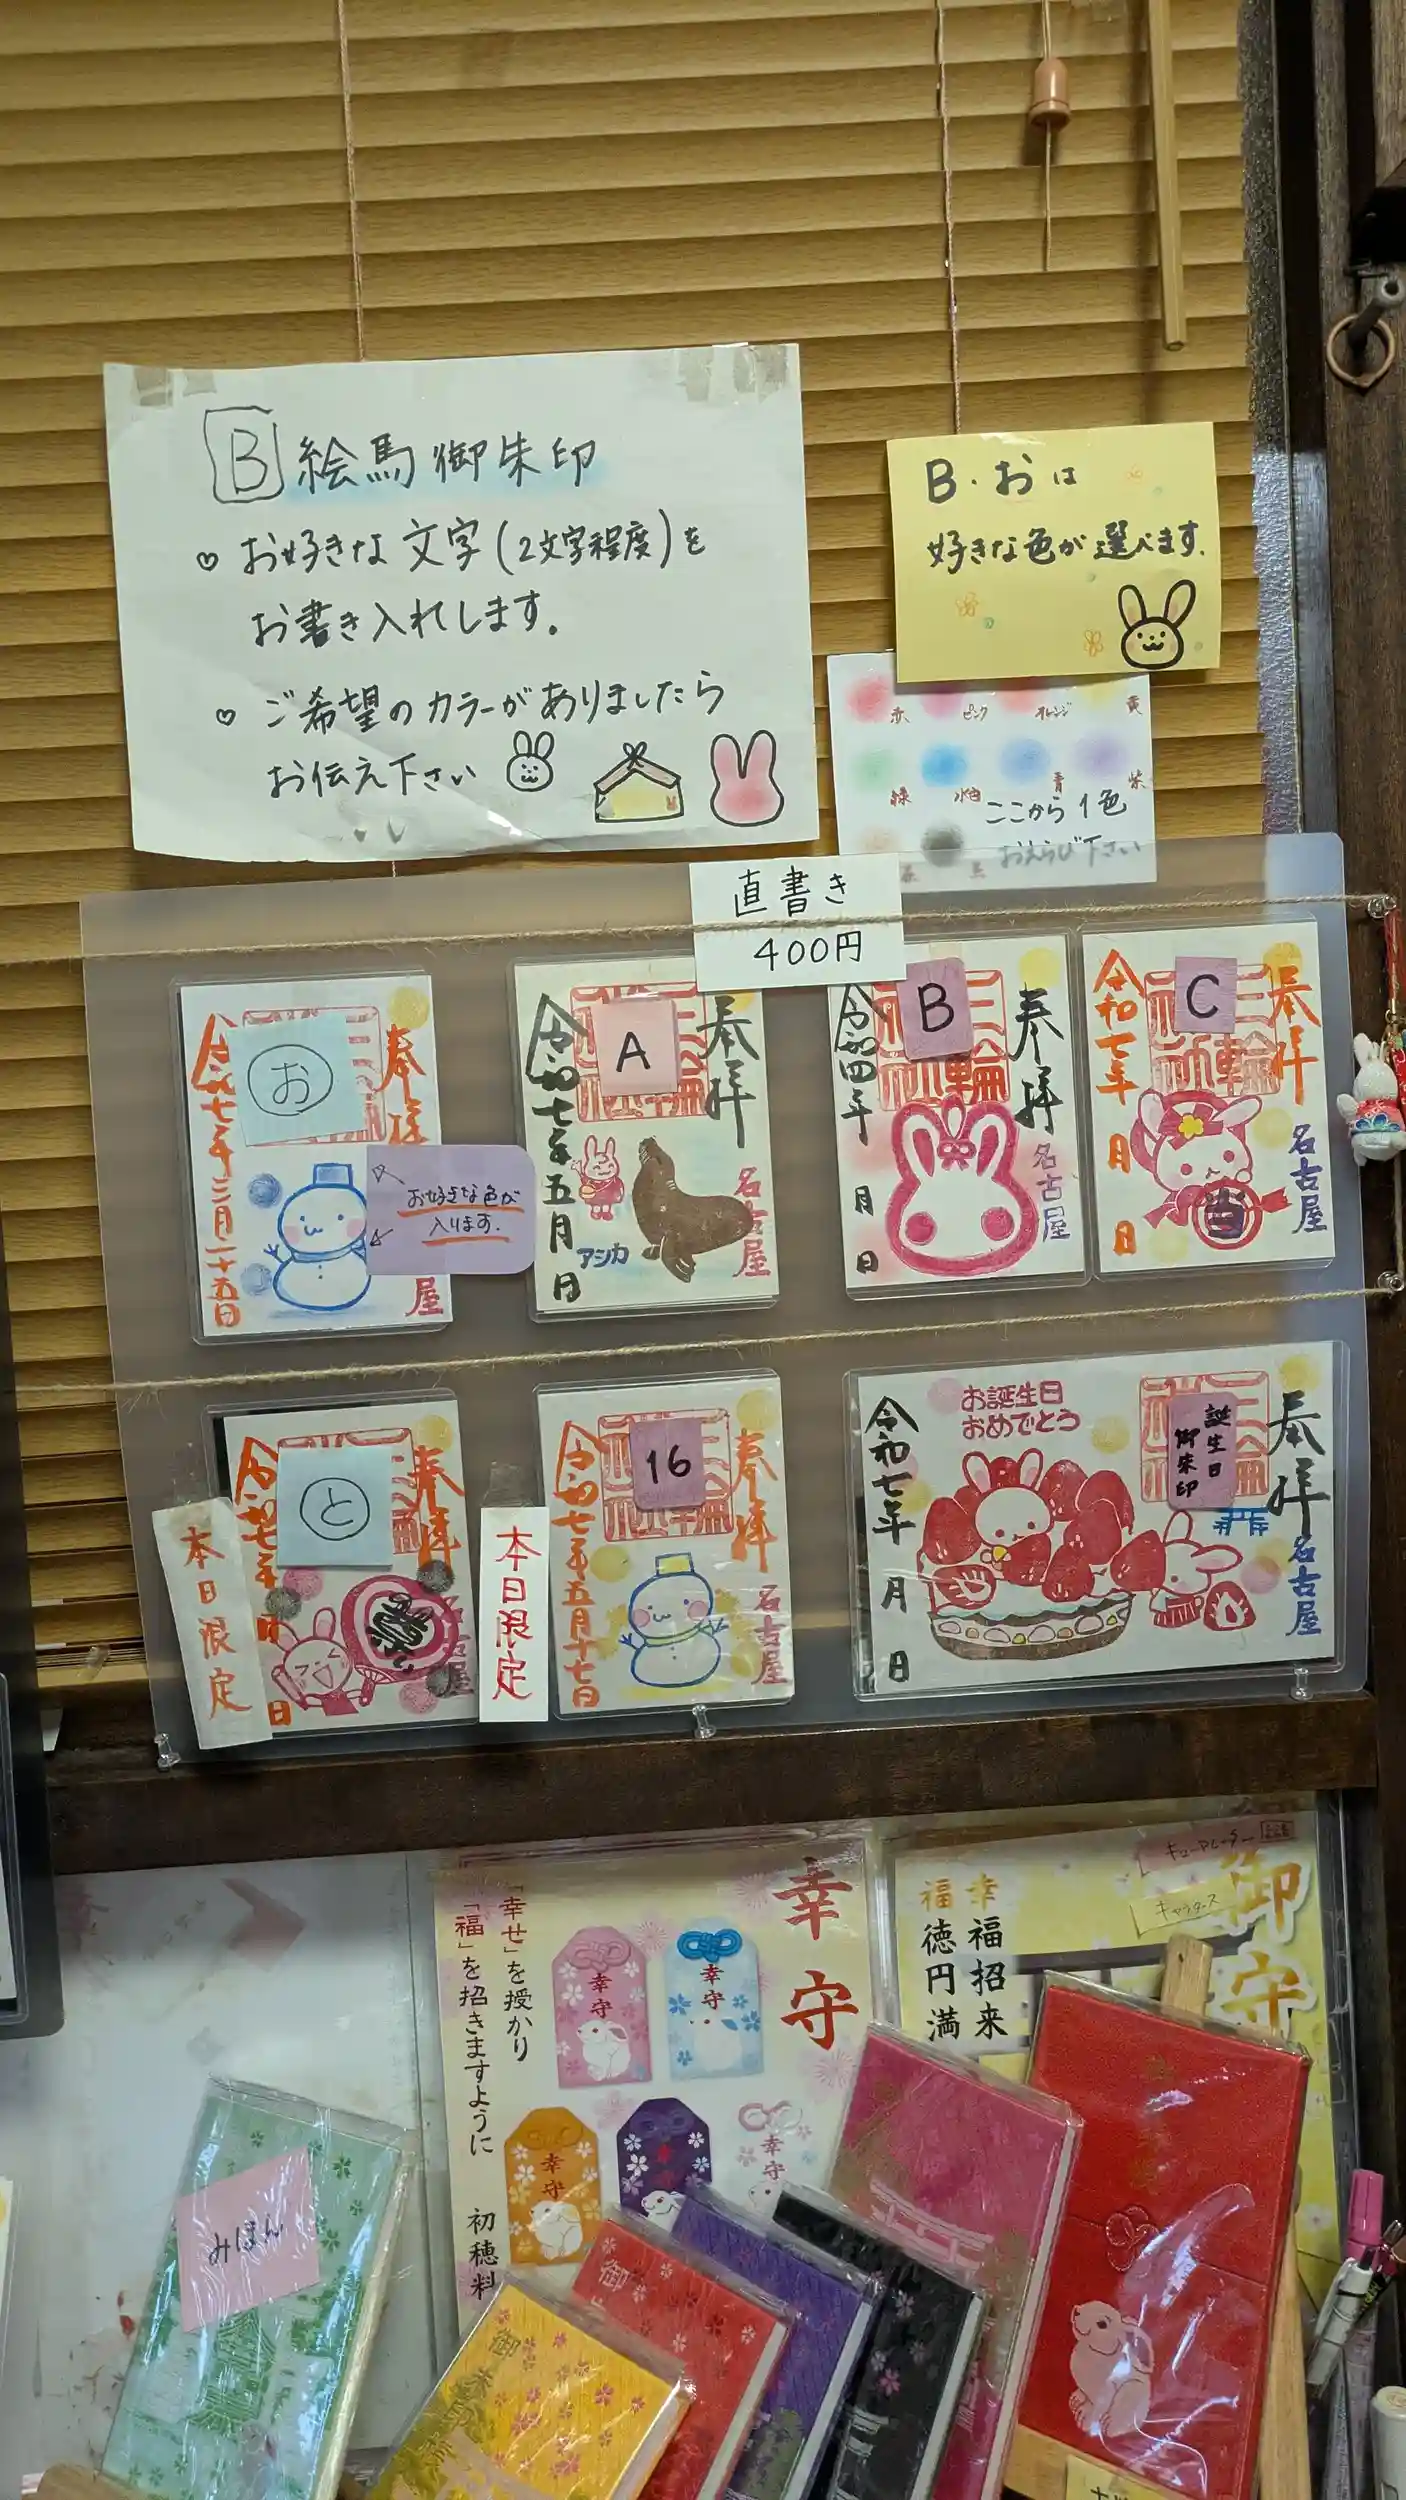 B 絵馬御朱印
♡ お好きな文字(2文字程度)を
お書き入れします。
♡ ご希望のカラーがありましたら
お伝え下さい
B・おは
好きな色が選べます。
赤 ピンク オレンジ 黄
緑 水色 青 紫
ここから1色
おえらび下さい
直書き
400円
お
奉拝
令和七年二月二十五日
お好きな色が
入ります。
屋
A
奉拝
令和七年五月
日
アシカ
名古屋
B
奉拝
三輪
令和四年
月
日
名古屋
C
奉拝
三輪
令和七年
月
日
名古屋
本日限定
と
奉拝
令和七年
日
本日限定
16
奉拝
令和七年五月十七日
名古屋
お誕生日
おめでとう
誕生日
御朱印
奉拝
令和七年
月
日
名古屋
幸守
「幸せ」を授かり
「福」を招きますように
初穂料
幸守
幸守
幸守
幸守
御守
幸福招来
福徳円満
キューアレーター
みほん
御
御